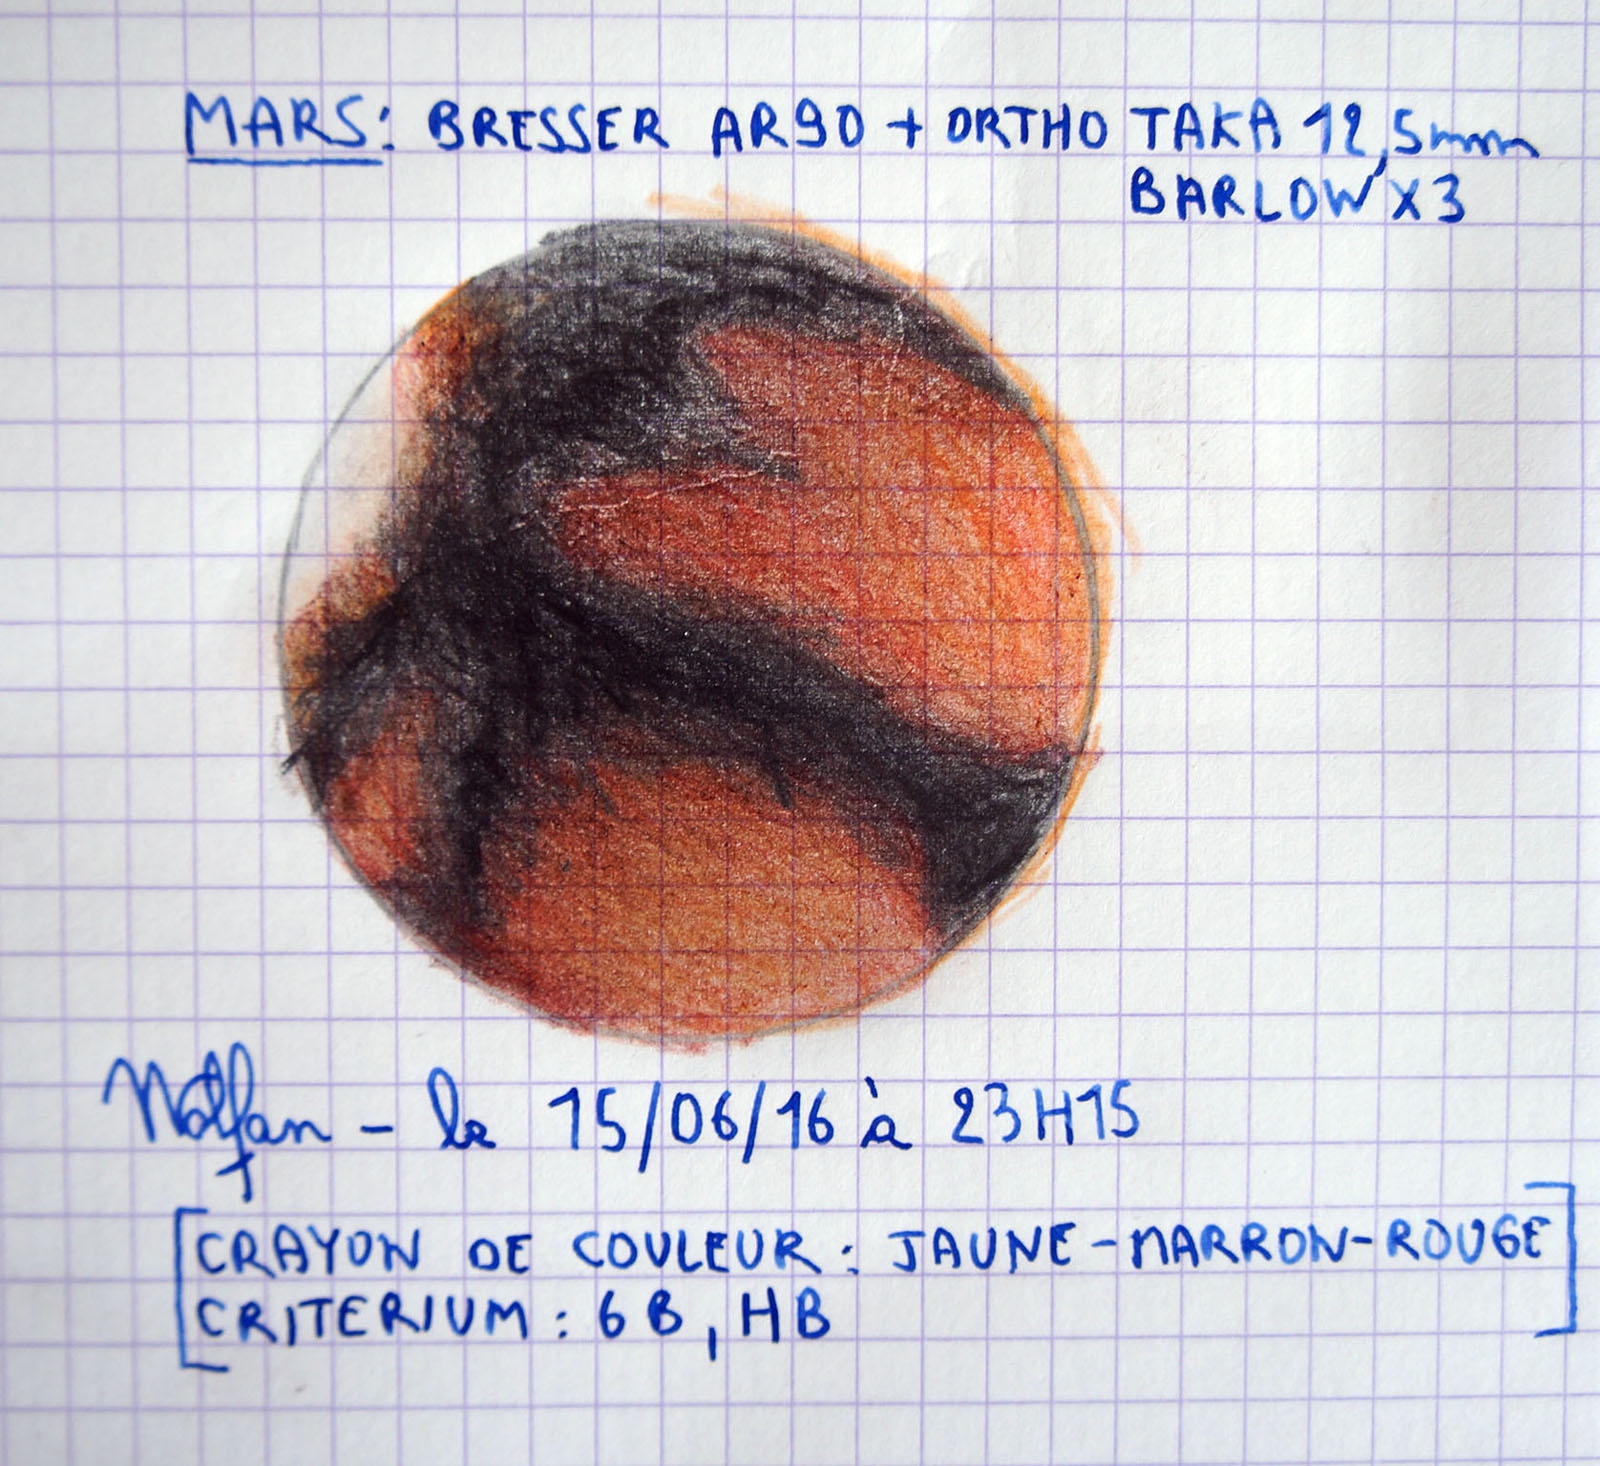 MARS: BRESSER AR90 + ORTHO TAKA 12,5mm
BARLOW X3
- le 15/06/16 à 23H15
[CRAYON DE COULEUR : JAUNE-MARRON-ROUGE]
CRITERIUM : 6B, HB